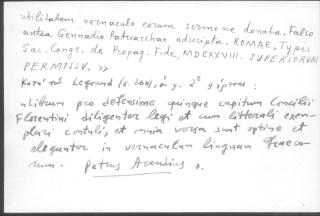 utilitatem vernaculo eorum sermone donata. Falso
antea Gennadio Patriarchae adscripta. ROMAE, Typis
Sac. Congr. de Propag. Fide, MDCXXVIII. SUPERIORUM
PERMISSU. »
Κατὰ τὸν Legrand (σ. 200), ἐν γ. 2ᾳ
«Librum pro defensione quinque capitum Concilii
Florentini diligenter legi et cum litterali exem-
plari contuli, et omnia versa sunt optime et
eleganter in vernaculum linguam Graeco-
rum. Petrus Arcudius».